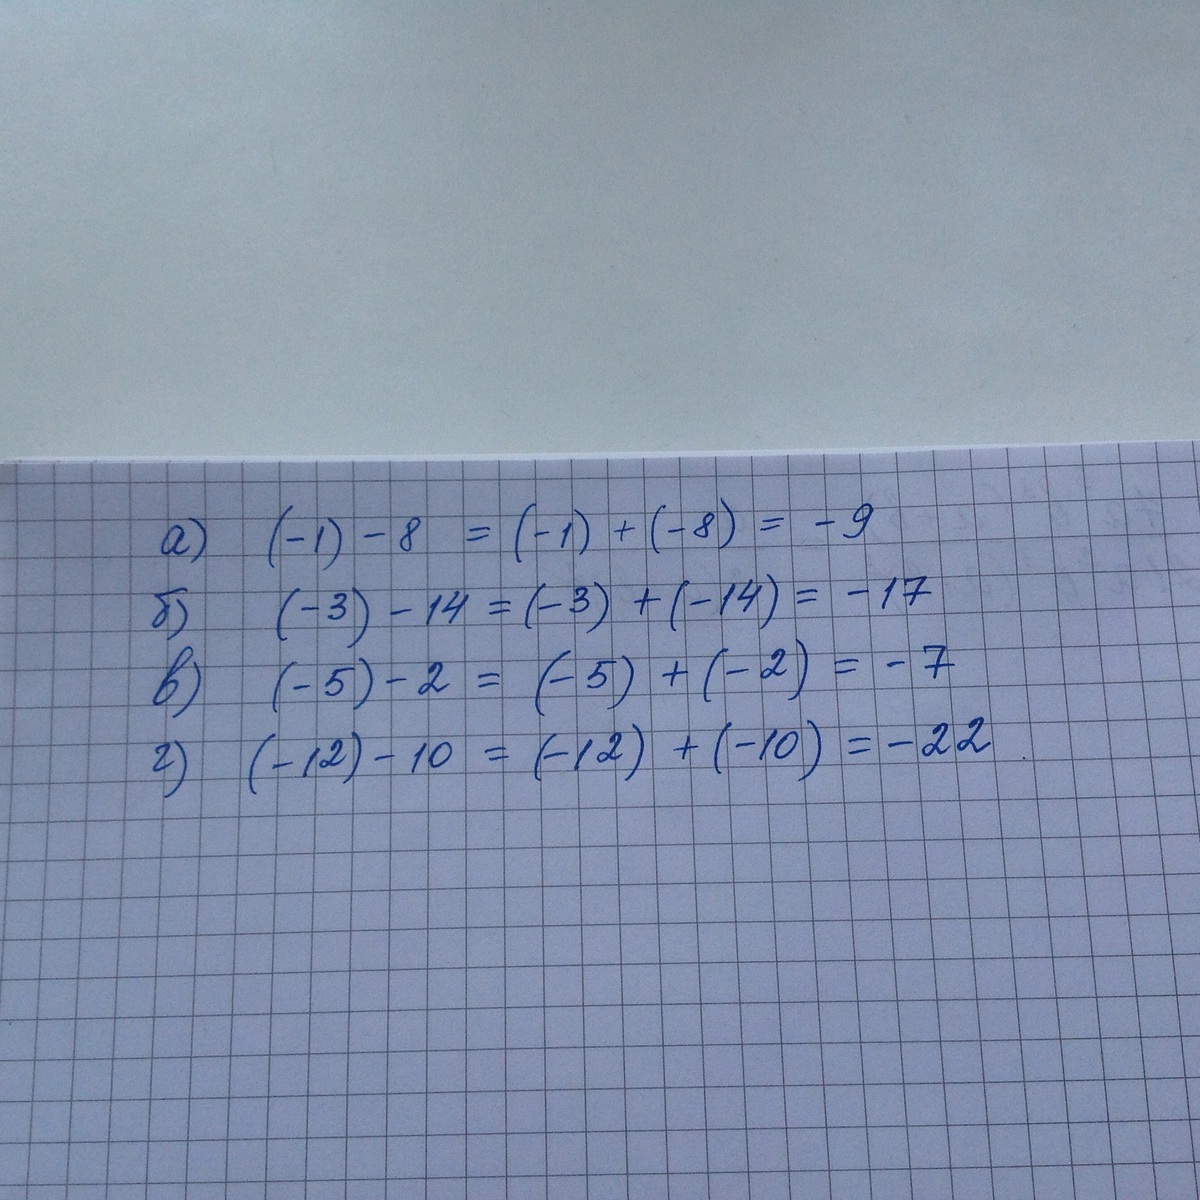 а) (-1) - 8 = (-1) + (-8) = -9
б) (-3) - 14 = (-3) + (-14) = -17
в) (-5) - 2 = (-5) + (-2) = -7
г) (-12) - 10 = (-12) + (-10) = -22